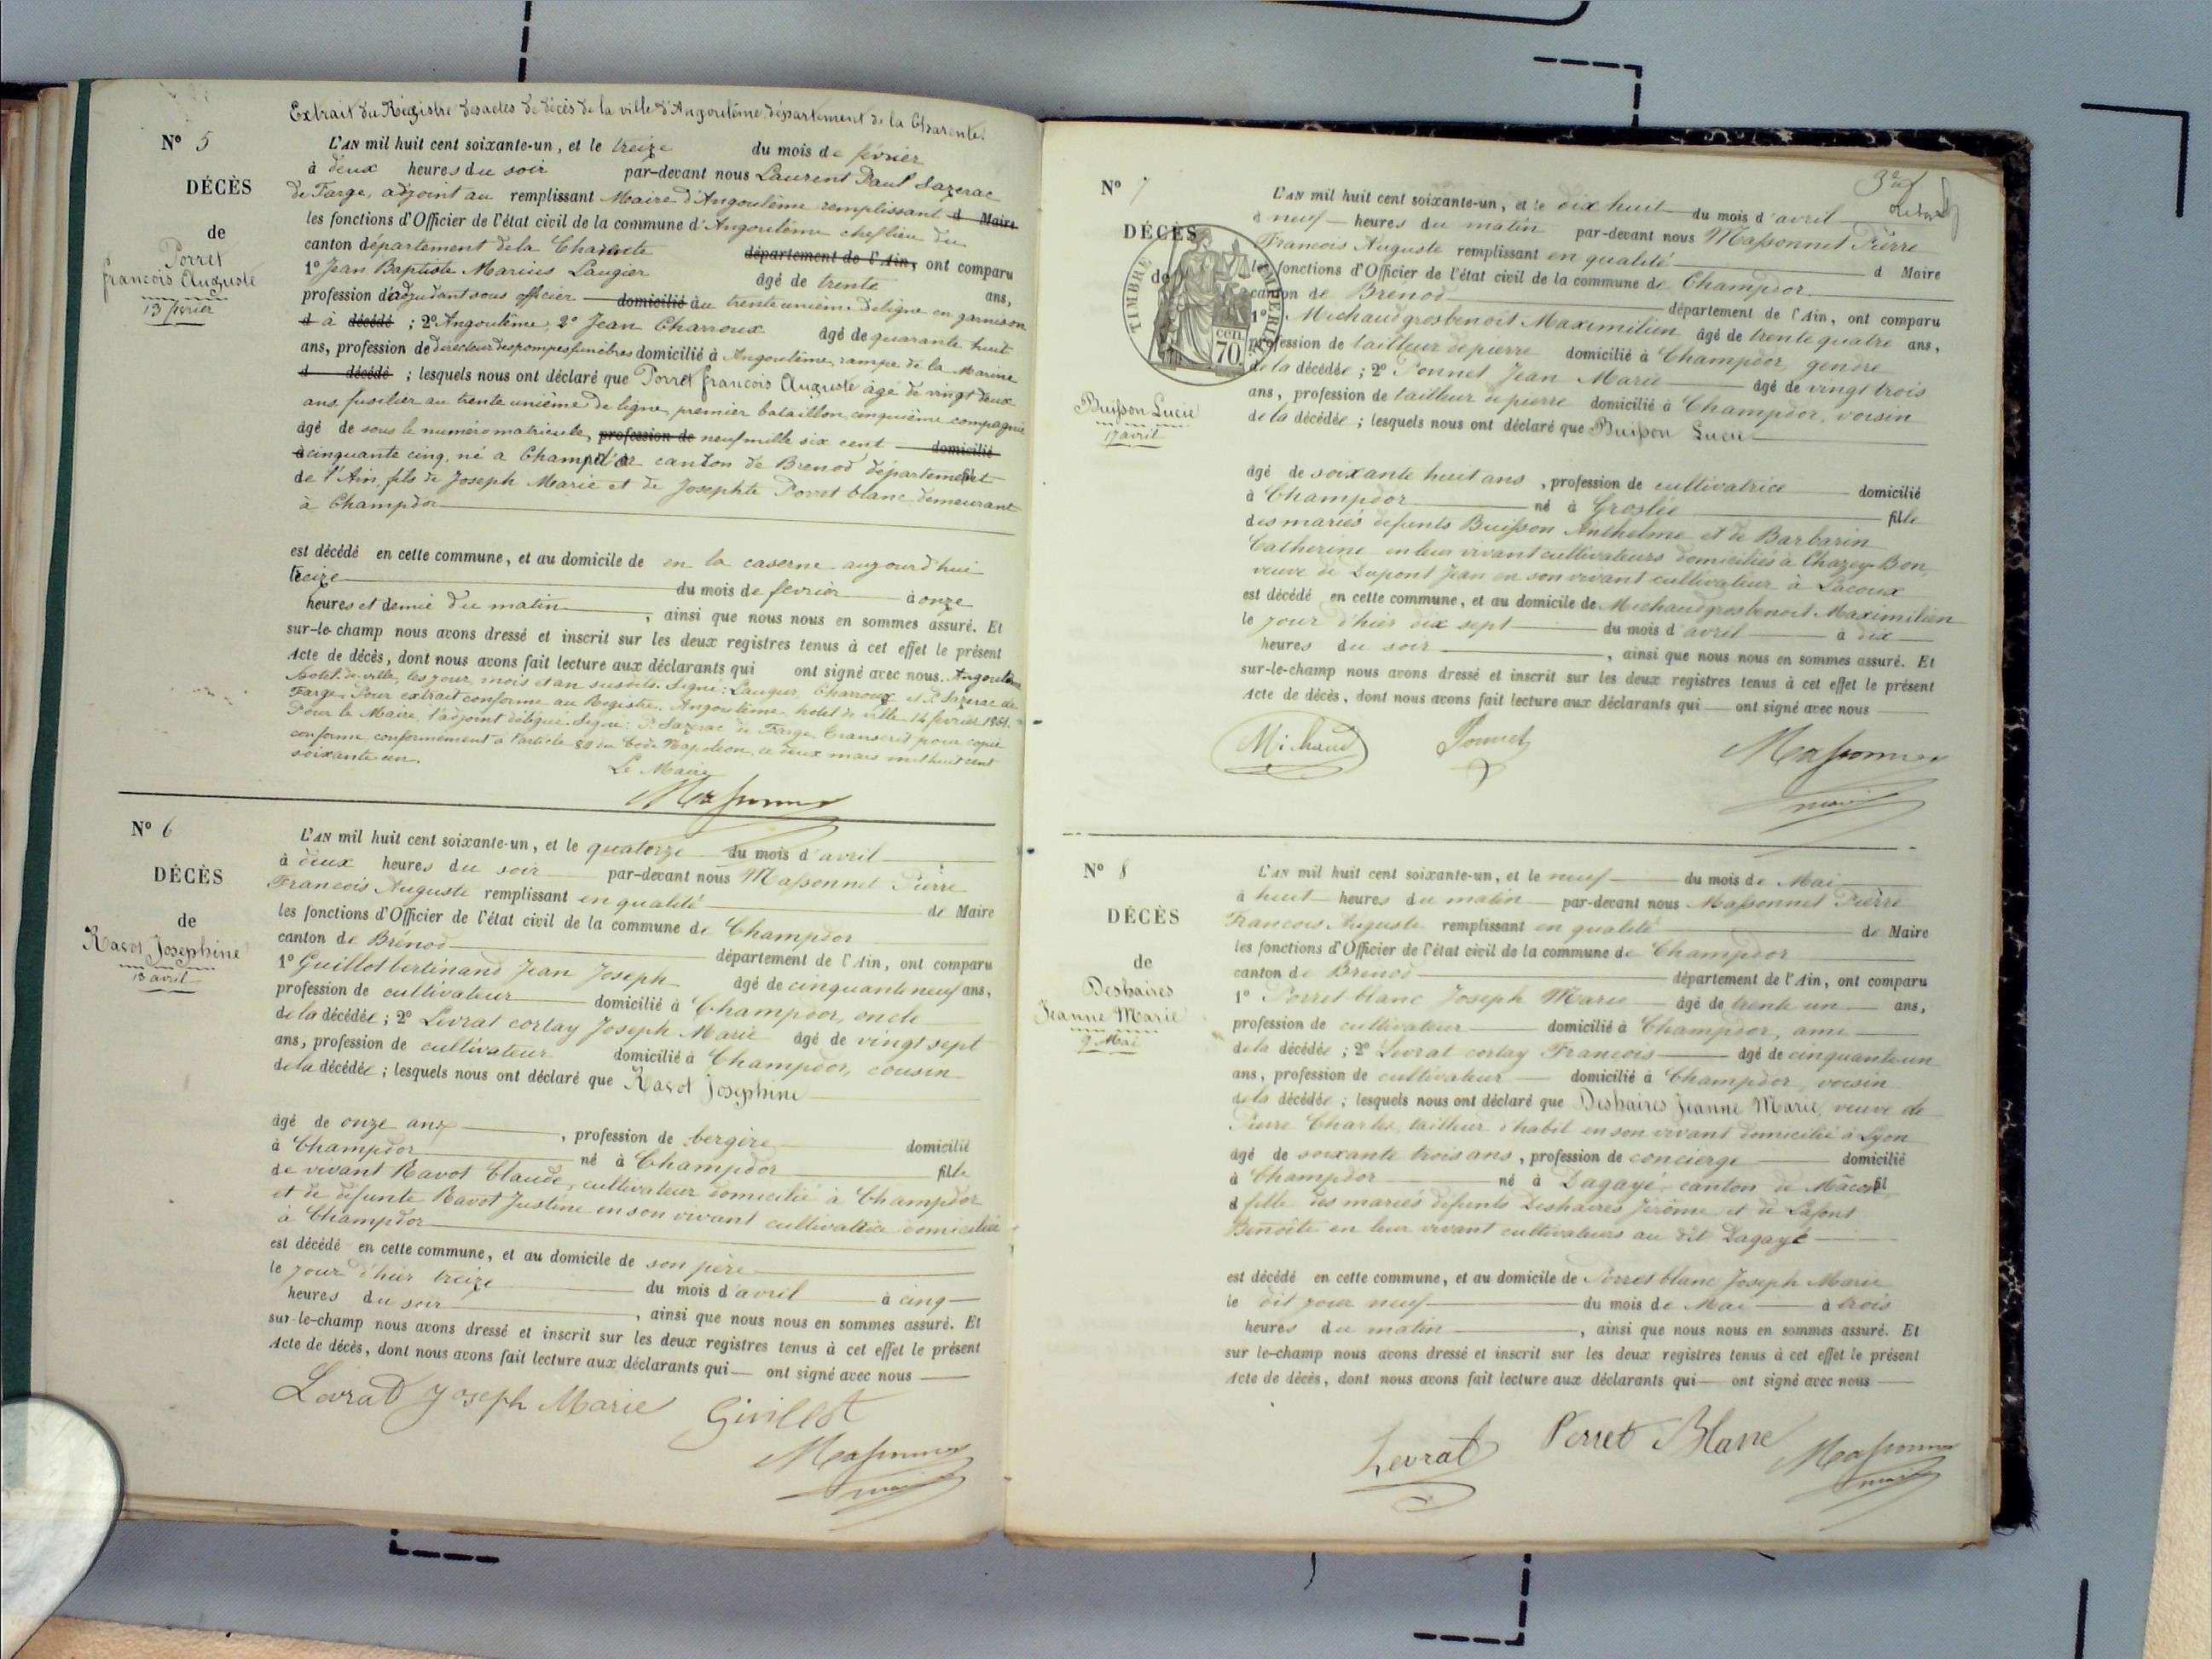 Extrait du Régistre des actes de décès de la ville d'Angoulême, département de la Charente.
N° 5
DÉCÈS
de
Porret
françois Auguste
13 février
L'AN mil huit cent soixante-un, et le treize du mois de février
à deux heures du soir par-devant nous Laurent Paul Sazerac
de Farge, adjoint au remplissant Maire d'Angoulême remplissant d Maire
les fonctions d'Officier de l'état civil de la commune d'Angoulême cheflieu du
canton département de la Charente département de l'Ain, ont comparu
1° Jean Baptiste Marius Laugier âgé de trente ans,
profession d'adjudant sous officier domicilié au trente unième de ligne en garnison
d à décédé ; 2° Angoulême, 2° Jean Charroux âgé de quarante huit
ans, profession de directeur des pompes funèbres domicilié à Angoulême, rampe de la Marine
d décédé ; lesquels nous ont déclaré que Porret françois Auguste âgé de vingt deux
ans, fusilier au trente unième de ligne, premier bataillon, cinquième compagnie
âgé de sous le numéro matricule, profession de neuf mille six cent domicilié
à cinquante cinq, né à Champd'or canton de Brenod département fil
de l'Ain, fils de Joseph Marie et de Josephte Porret blanc demeurant
à Champdor
est décédé en cette commune, et au domicile de en la caserne aujourd'hui
treize du mois de fevrier à onze
heures et demie du matin , ainsi que nous nous en sommes assuré. Et
sur-le-champ nous avons dressé et inscrit sur les deux registres tenus à cet effet le présent
Acte de décès, dont nous avons fait lecture aux déclarants qui ont signé avec nous. Angoulême
hotel de ville, les jour, mois et an susdits. Signé : Laugier, Charroux et P. Sazerac de
Farge. Pour extrait conforme au Registre. Angoulême, hotel de ville 14 fevrier 1861.
Pour le Maire, l'adjoint délégué. Signé : P. Sazerac de Farge. Transcrit pour copie
conforme, conformément à l'article 80 du Code Napoléon, ce deux mars mil huit cent
soixante un.
Le Maire
Massonnet
N° 6
DÉCÈS
de
Ravot Josephine
13 avril
L'AN mil huit cent soixante-un, et le quatorze du mois d'avril
à deux heures du soir par-devant nous Massonnet Pierre
François Auguste remplissant en qualité de Maire
les fonctions d'Officier de l'état civil de la commune de Champdor
canton de Brénod département de l'Ain, ont comparu
1° Guillot bertinand Jean Joseph âgé de cinquante neuf ans,
profession de cultivateur domicilié à Champdor, oncle
de la décédée ; 2° Levrat cortay Joseph Marie âgé de vingt sept
ans, profession de cultivateur domicilié à Champdor, cousin
de la décédée ; lesquels nous ont déclaré que Ravot Josephine
âgé de onze ans , profession de bergère domicilié
à Champdor né à Champdor fille
de vivant Ravot Claude, cultivateur domicilié à Champdor
et de défunte Ravot Justine en son vivant cultivatrice domiciliée
à Champdor
est décédé en cette commune, et au domicile de son père
le jour d'hier treize du mois d'avril à cinq
heures du soir , ainsi que nous nous en sommes assuré. Et
sur-le-champ nous avons dressé et inscrit sur les deux registres tenus à cet effet le présent
Acte de décès, dont nous avons fait lecture aux déclarants qui ont signé avec nous
Levrat Joseph Marie Guillot
Massonnet
maire
N° 7
DÉCÈS
de
TIMBRE
cen
70
Buisson Lucie
17 avril
L'AN mil huit cent soixante-un, et le dix huit du mois d'avril
à neuf heures du matin par-devant nous Massonnet Pierre
François Auguste remplissant en qualité d Maire
les fonctions d'Officier de l'état civil de la commune de Champdor
canton de Brénod département de l'Ain, ont comparu
1° Michaud gros benoit Maximilien âgé de trente quatre ans,
profession de tailleur de pierre domicilié à Champdor, gendre
de la décédée ; 2° Ponnet Jean Marie âgé de vingt trois
ans, profession de tailleur de pierre domicilié à Champdor, voisin
de la décédée ; lesquels nous ont déclaré que Buisson Lucie
âgé de soixante huit ans , profession de cultivatrice domicilié
à Champdor né à Groslée fille
des mariés défunts Buisson Anthelme et de Barbarin
Catherine en leur vivant cultivateurs domiciliés à Chazey-Bon,
veuve de Dupont Jean en son vivant cultivateur à Lacoux
est décédé en cette commune, et au domicile de Michaud gros benoit Maximilien
le jour d'hier dix sept du mois d'avril à dix
heures du soir , ainsi que nous nous en sommes assuré. Et
sur-le-champ nous avons dressé et inscrit sur les deux registres tenus à cet effet le présent
Acte de décès, dont nous avons fait lecture aux déclarants qui ont signé avec nous
Michaud Ponnet Massonnet
maire
N° 8
DÉCÈS
de
Deshaires
Jeanne Marie
9 Mai
L'AN mil huit cent soixante-un, et le neuf du mois de Mai
à huit heures du matin par-devant nous Massonnet Pierre
François Auguste remplissant en qualité de Maire
les fonctions d'Officier de l'état civil de la commune de Champdor
canton de Brenod département de l'Ain, ont comparu
1° Porret-blanc Joseph Marie âgé de trente un ans,
profession de cultivateur domicilié à Champdor, ami
de la décédée ; 2° Levrat cortay François âgé de cinquante un
ans, profession de cultivateur domicilié à Champdor, voisin
de la décédée ; lesquels nous ont déclaré que Deshaires Jeanne Marie, veuve de
Pierre Charles, tailleur d'habit en son vivant domicilié à Lyon
âgé de soixante trois ans , profession de concierge domicilié
à Champdor né à Dagayé, canton de Mâcon fil
d fille des mariés défunts Deshaires Jérôme et de Lafont
Benoîte en leur vivant cultivateurs au dit Dagayé
est décédé en cette commune, et au domicile de Porret blanc Joseph Marie
le dit jour neuf du mois de Mai à trois
heures du matin , ainsi que nous nous en sommes assuré. Et
sur le-champ nous avons dressé et inscrit sur les deux registres tenus à cet effet le présent
Acte de décès, dont nous avons fait lecture aux déclarants qui ont signé avec nous
Levrat Perret Blanc Massonnet
maire